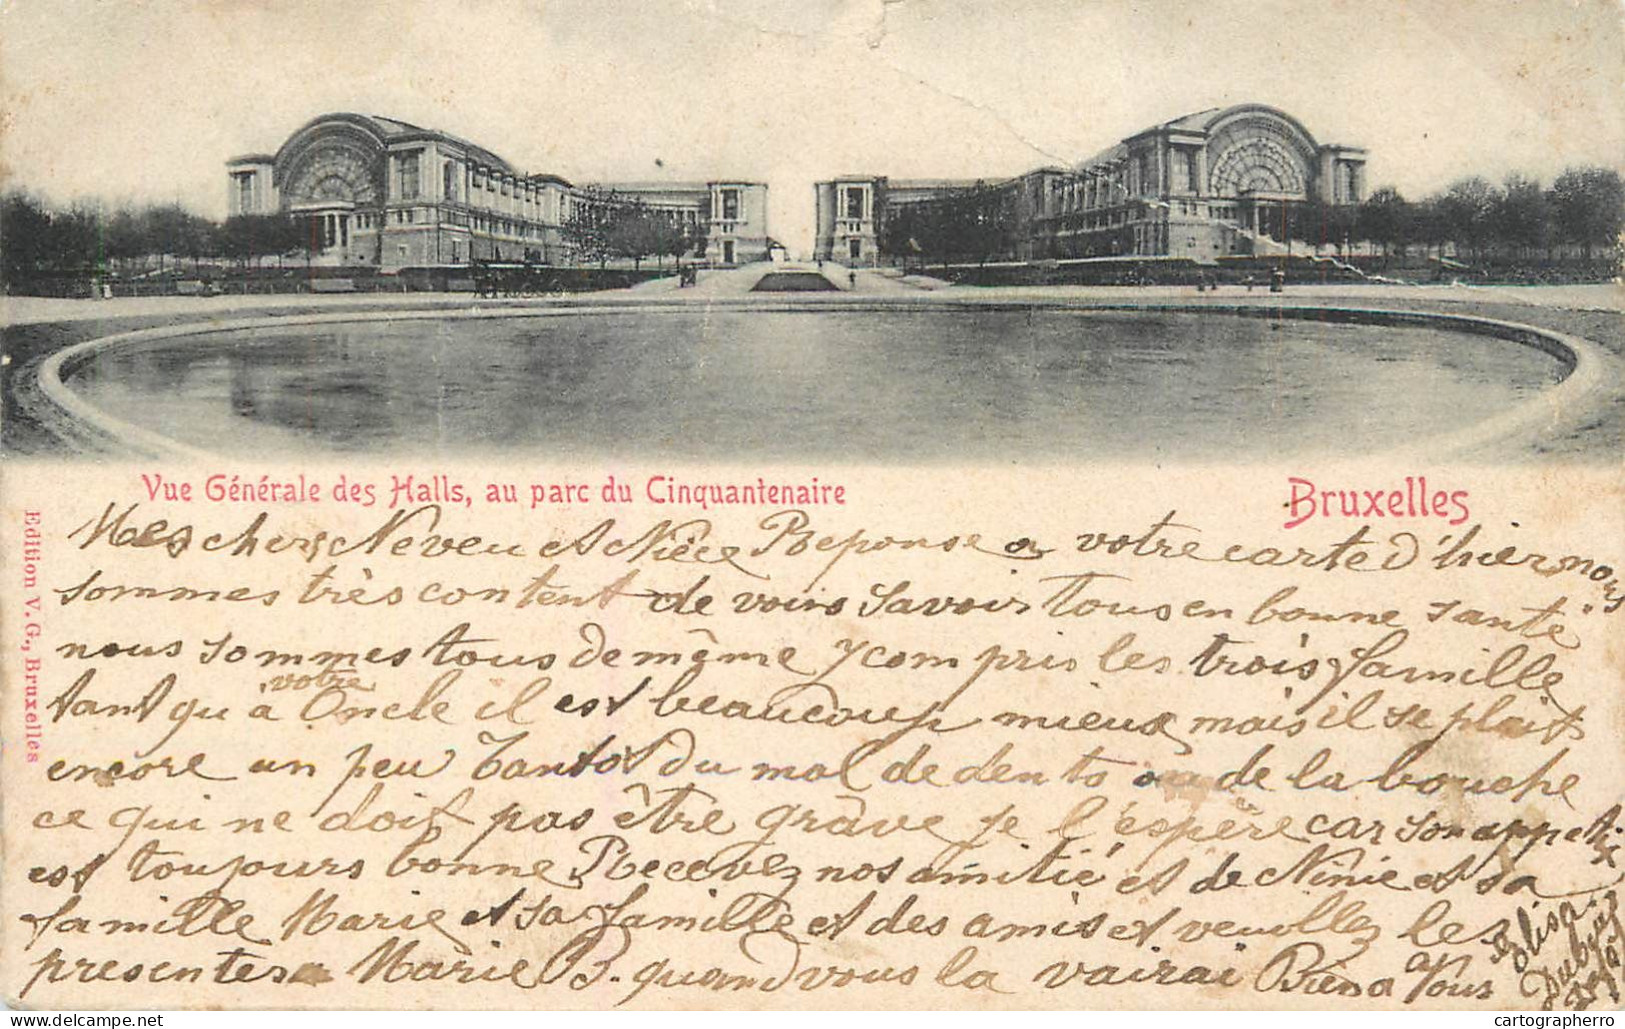 Vue Générale des Halls, au parc du Cinquantenaire
Bruxelles
Edition V. G., Bruxelles
Mes chers Neveu et Nièce Reponse a votre carte d'hier nous
sommes très content de vous savoir tous en bonne santé
nous sommes tous de même y compris les trois famille
tant qu a votre Oncle il est beaucoup mieux mais il se plait
encore un peu tantot du mal de dents ou de la bouche
ce qui ne doit pas être grâve je l'espère car son appetix
est toujours bonne Recevez nos amitié et de Ninie et sa
famille Marie et sa famille et des amis et veuillez les
presenter a Marie B. quand vous la vairai Bien a Vous
Elisa
www.delcampe.net
cartographerro